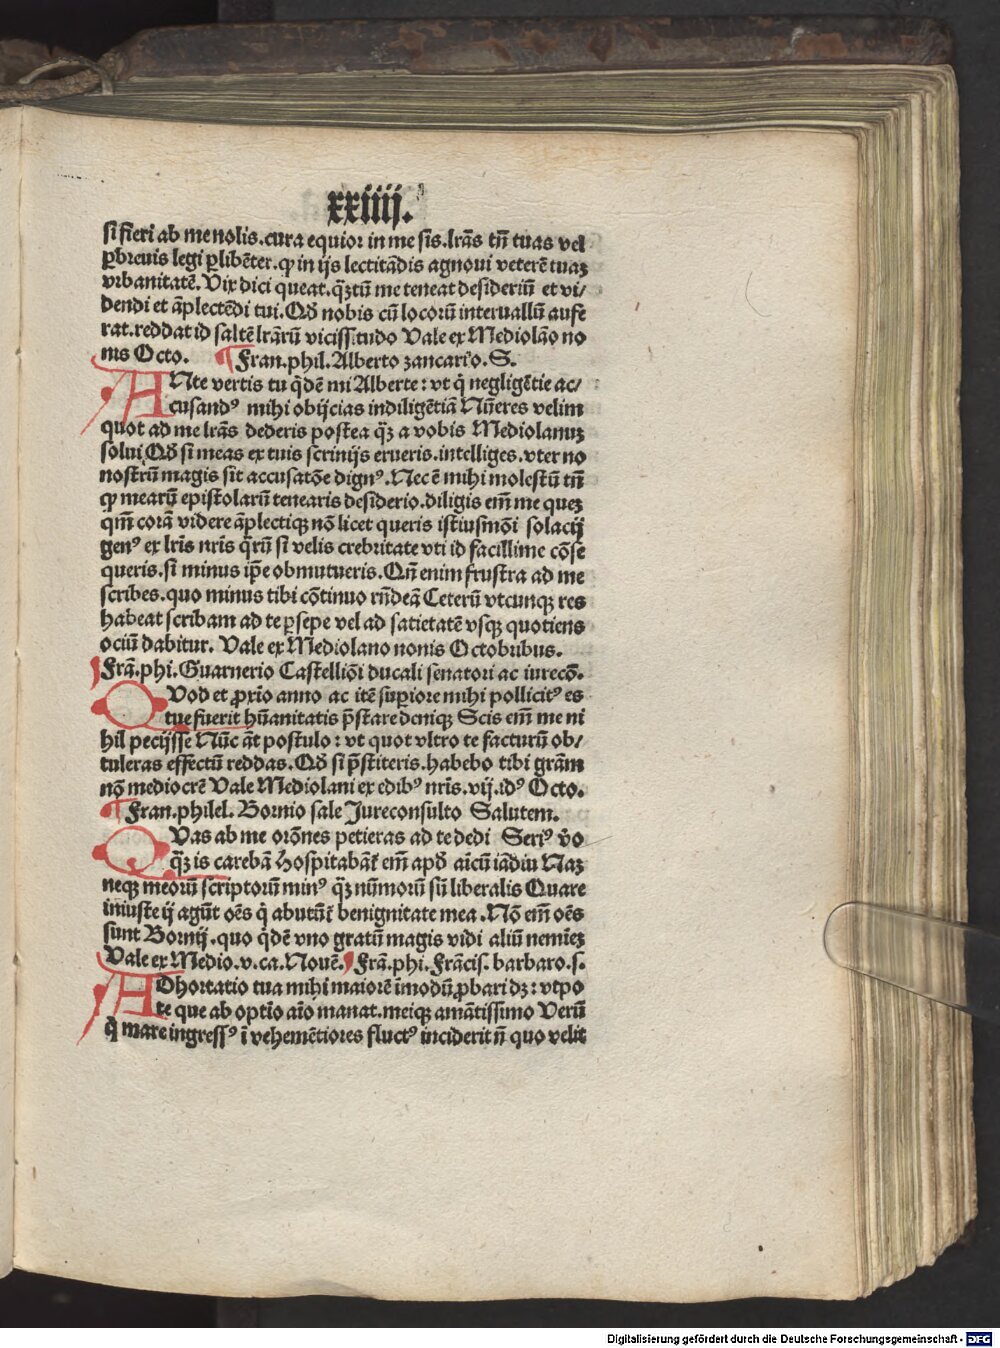 xxiiij.
si fieri ab me nolis.cura equior in me sis.lrãs tñ tuas vel
ꝑbreuis legi ꝑlibẽter.ꝙ in ijs lectitãdis agnoui veterẽ tuaꝫ
vrbanitatẽ. Vix dici queat.q̃ꝫtũ me teneat desideriũ et vi/
dendi et ãplectẽdi tui. Qđ nobis cũ locorũ interuallũ aufe
rat.reddat id saltẽ lrãrũ vicissitudo Vale ex Mediolão no
nis Octo. ¶ Fran.phil.Alberto zancario.S.
ANte vertis tu q̃dẽ mi Alberte: vt q̃ negligẽtie ac/
cusandꝰ mihi obijcias indiligẽtiã Nũeres velim
quot ad me lrãs dederis postea q̃ꝫ a vobis Mediolanuꝫ
solui Qđ si meas ex tuis scrinijs erueris.intelliges.vter no
nostrũ magis sit accusatõe dignꝰ. Nec ẽ mihi molestũ tñ
ꝙ mearũ epistolarũ tenearis desiderio.diligis em̃ me queꝫ
qm̃ corã videre ãplectiqꝫ nõ licet queris istiusmõi solacij
genꝰ ex lr̃is nr̃is q̃rũ si velis crebritate vti id facillime cõse
queris.si minus ip̃e obmutueris. Qñ enim frustra ad me
scribes.quo minus tibi cõtinuo rñdeã Ceterũ vtcunqꝫ res
habeat scribam ad te ꝑsepe vel ad satietatẽ vsqꝫ quotiens
ociũ dabitur. Vale ex Mediolano nonis Octobribus.
¶ Frã.phi.Guarnerio Castelliõi ducali senatori ac iurecõ.
QVod et ꝓxio anno ac itẽ suꝑiore mihi pollicitꝰ es
tue fuerit hũanitatis p̃stare deniqꝫ Scis em̃ me ni
hil pecijsse Nũc ãt postulo: vt quot vltro te facturũ ob/
tuleras effectũ reddas. Qđ si p̃stiteris.habebo tibi grãm
nõ mediocrẽ Vale Mediolani ex edibꝰ nr̃is.vij.idꝰ Octo.
¶ Fran.philel. Bornio sale Jureconsulto Salutem.
QVas ab me orõnes petieras ad te dedi Seriꝰ ṽo
q̃ꝫ is carebã Hospitabãt̃ em̃ apđ aĩcũ iãdiu Naꝫ
neqꝫ meorũ scriptorũ minꝰ q̃ꝫ nũmorũ sũ liberalis Quare
iniuste ij agũt oẽs q̃ abutũt̃ benignitate mea .Nõ em̃ oẽs
sunt Bornij.quo q̃dẽ vno gratũ magis vidi aliũ neminẽ
Vale ex Medio.v.ca.Nouẽ. ¶ Frã.phi.Frãcis.barbaro.s.
ADhortatio tua mihi maiorẽ ĩmodũ ꝓbari dꝫ: vtpo
te que ab optĩo aĩo manat.meiqꝫ amãtissimo Verũ
q̃ mare ingressꝰ ĩ vehemẽtiores fluctꝰ inciderit ñ quo velit
Digitalisierung gefördert durch die Deutsche Forschungsgemeinschaft - DFG